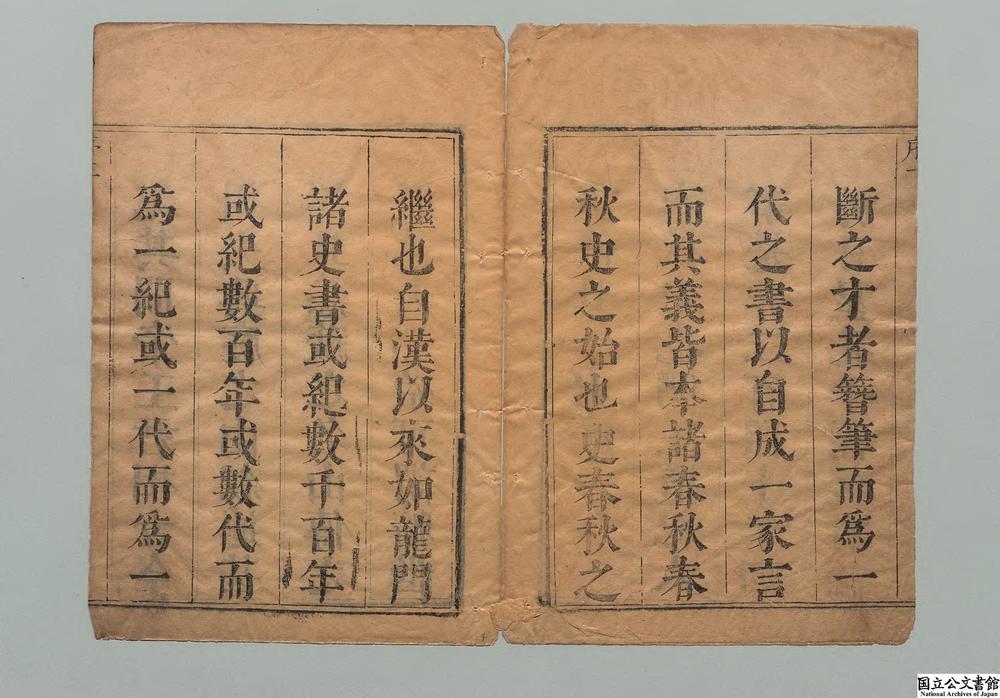 序一
斷之才者簪筆而爲一
代之書以自成一家言
而其義皆本諸春秋春
秋史之始也史春秋之
繼也自漢以來如龍門
諸史書或紀數千百年
或紀數百年或數代而
爲一紀或一代而爲一
国立公文書館
National Archives of Japan